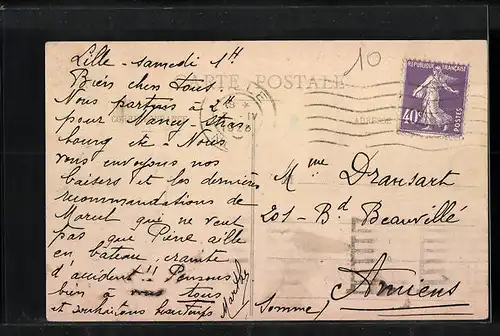 10
Lille - samedi 1H
Bien chers Tous
CARTE POSTALE
Nous partons à 2h
pour Nancy - Stras
bourg etc - Nous
vous envoyons nos
baisers et les dernières
recommandations de
Marcel qui ne veut
pas que Pierre aille
en bateau, crainte
d'accident!! Pensons
bien à vous tous
et souhaitons
RÉPUBLIQUE FRANÇAISE
40c
POSTES
ADRESSE
Mme Dransart
201 - Bd Beauvillé
Amiens
(Somme)